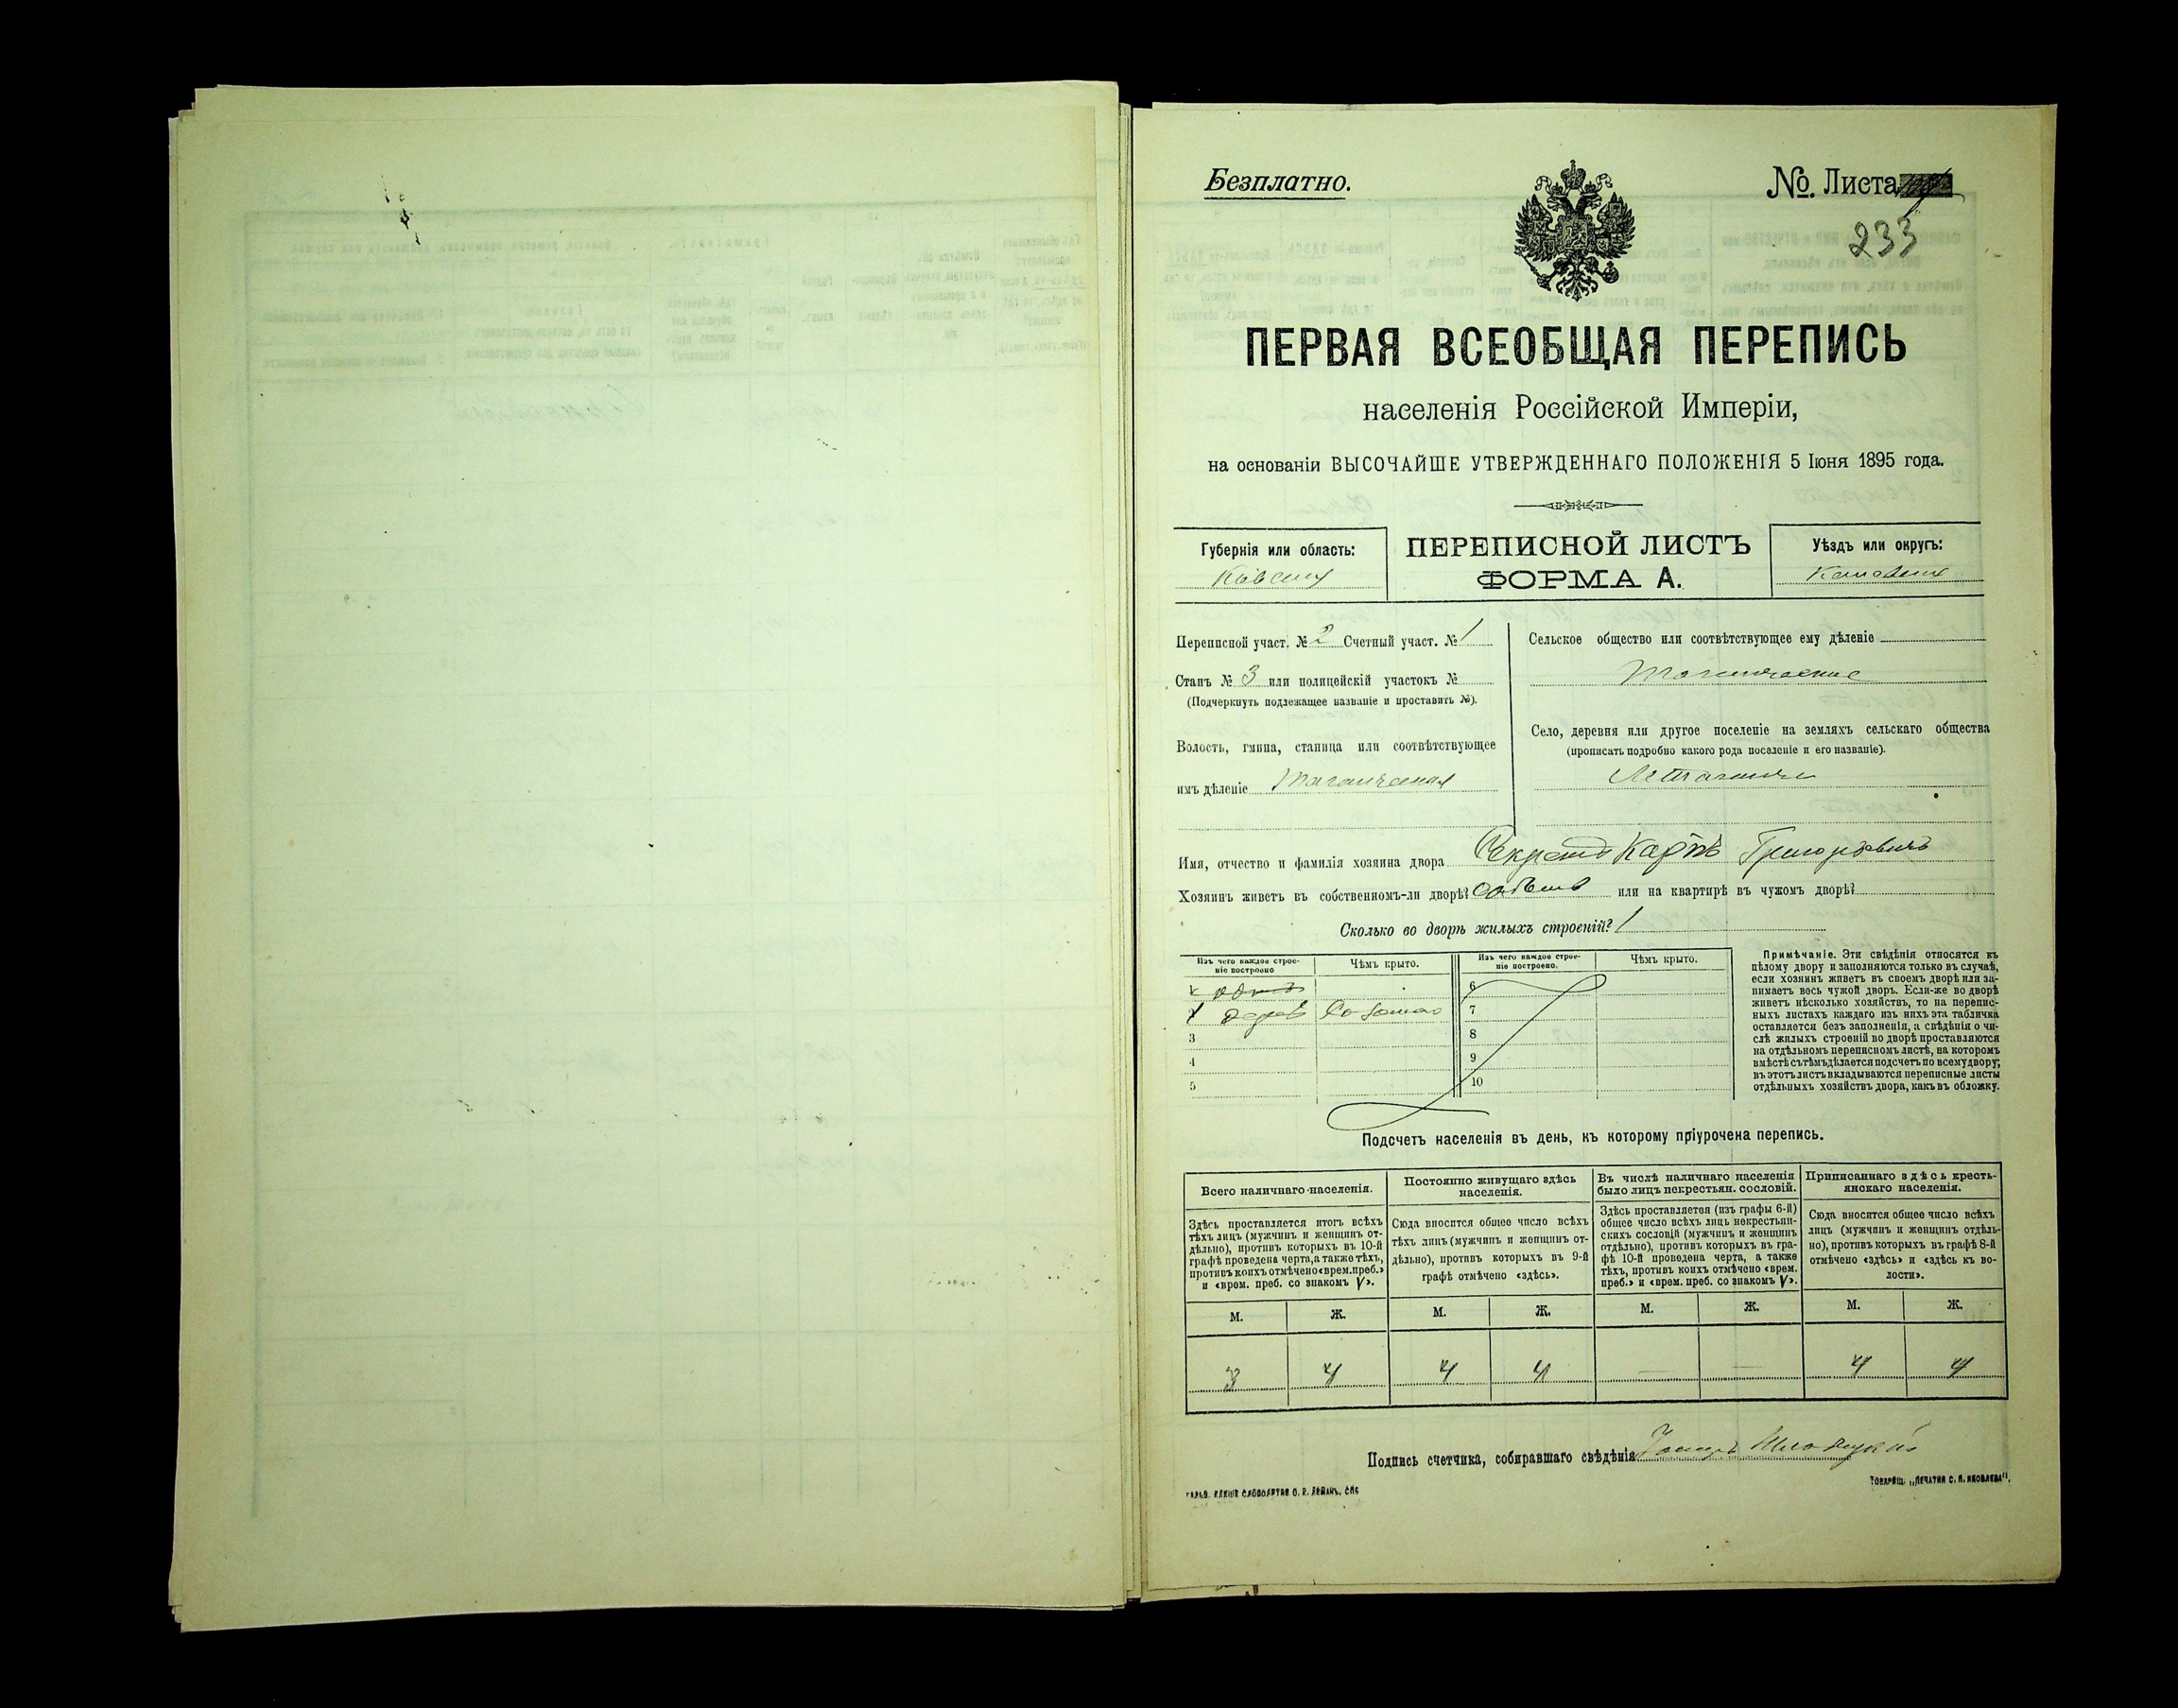 Безплатно.
№ Листа
233
ПЕРВАЯ ВСЕОБЩАЯ ПЕРЕПИСЬ
населенія Россійской Имперіи,
на основаніи ВЫСОЧАЙШЕ УТВЕРЖДЕННАГО ПОЛОЖЕНІЯ 5 Іюня 1895 года.
Губернія или область:
Кіевская
ПЕРЕПИСНОЙ ЛИСТЪ
ФОРМА А.
Уѣздъ или округъ:
Каневскій
Переписной участ. № 2 Счетный участ. № 1
Станъ № 3 или полицейскій участокъ №
(Подчеркнуть подлежащее названіе и проставить №).
Волость, гмина, станица или соотвѣтствующее
имъ дѣленіе Таганчская
Сельское общество или соотвѣтствующее ему дѣленіе
Таганчское
Село, деревня или другое поселеніе на земляхъ сельскаго общества
(прописать подробно какого рода поселеніе и его названіе).
М Таганча
Имя, отчество и фамилія хозяина двора Карпъ Григорьевичъ
Хозяинъ живетъ въ собственномъ-ли дворѣ? или на квартирѣ въ чужомъ дворѣ?
Сколько во дворѣ жилыхъ строеній? 1
Изъ чего каждое строе-
ніе построено
Чѣмъ крыто.
Изъ чего каждое строе-
ніе построено.
Чѣмъ крыто.
1 дерев Соломою
3
4
5
6
7
8
9
10
Примѣчаніе. Эти свѣдѣнія относятся къ
цѣлому двору и заполняются только въ случаѣ,
если хозяинъ живетъ въ своемъ дворѣ или за-
нимаетъ весь чужой дворъ. Если-же во дворѣ
живетъ нѣсколько хозяйствъ, то на перепис-
ныхъ листахъ каждаго изъ нихъ эта табличка
оставляется безъ заполненія, а свѣдѣнія о чи-
слѣ жилыхъ строеній во дворѣ проставляются
на отдѣльномъ переписномъ листѣ, на которомъ
вмѣстѣ съ тѣмъ дѣлается подсчетъ по всему двору;
въ этотъ листъ вкладываются переписные листы
отдѣльныхъ хозяйствъ двора, какъ въ обложку.
Подсчетъ населенія въ день, къ которому пріурочена перепись.
Всего наличнаго населенія.
Постоянно живущаго здѣсь
населенія.
Въ числѣ наличнаго населенія
было лицъ некрестьян. сословій.
Приписаннаго здѣсь кресть-
янскаго населенія.
Здѣсь проставляется итогъ всѣхъ
тѣхъ лицъ (мужчинъ и женщинъ от-
дѣльно), противъ которыхъ въ 10-й
графѣ проведена черта, а также тѣхъ,
противъ коихъ отмѣчено «врем. преб.»
и «врем. преб. со знакомъ V».
Сюда вносится общее число всѣхъ
тѣхъ лицъ (мужчинъ и женщинъ от-
дѣльно), противъ которыхъ въ 9-й
графѣ отмѣчено «здѣсь».
Здѣсь проставляется (изъ графы 6-й)
общее число всѣхъ лицъ некрестьян-
скихъ сословій (мужчинъ и женщинъ
отдѣльно), противъ которыхъ въ гра-
фѣ 10-й проведена черта, а также
тѣхъ, противъ коихъ отмѣчено «врем.
преб.» и «врем. преб. со знакомъ V».
Сюда вносится общее число всѣхъ
лицъ (мужчинъ и женщинъ отдѣль-
но), противъ которыхъ въ графѣ 8-й
отмѣчено «здѣсь» и «здѣсь къ во-
лости».
М. Ж. М. Ж. М. Ж. М. Ж.
3 4 4 4 — — 4 4
Подпись счетчика, собиравшаго свѣдѣнія
ТОВАРИЩ. „ПЕЧАТНЯ С. П. ЯКОВЛЕВА".